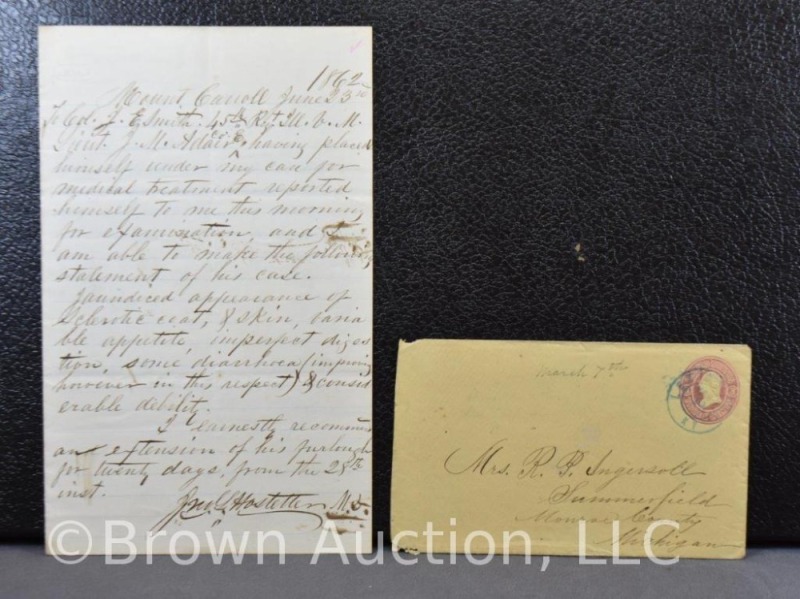 1862
Mount Carroll June 23rd
To Col. J. E. Smith 45th Rgt. Ill. V. M.
Lieut. J. M. Adair having placed
himself under my care for
medical treatment reported
himself to me this morning
for examination, and I
am able to make the following
statement of his case.
Jaundiced appearance of
Sclerotic coat, & skin, varia
ble appetite, imperfect diges
tion, some diarrhoea (improving
however in this respect) & consid
erable debility.
I earnestly recommend
an extension of his furlough
for twenty days, from the 28th
inst.
Hostetter M.D.
March 7th
Mrs. R. P. Ingersoll
Summerfield
Monroe County
Michigan
© Brown Auction, LLC